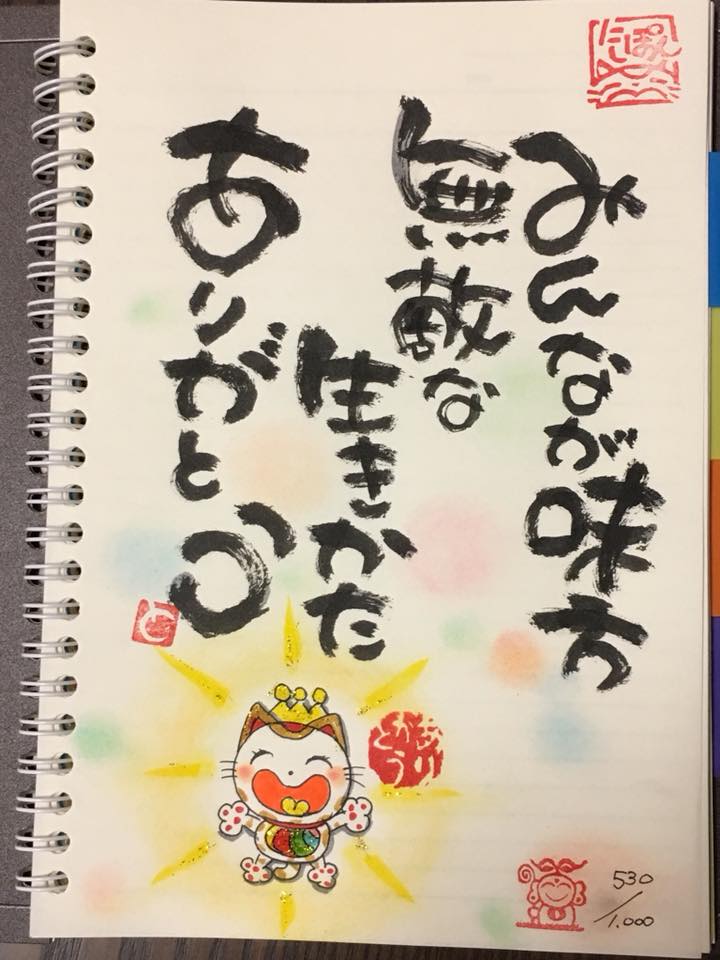 みんなが味方
無敵な
生きかた
ありがとう
と
530
1.000